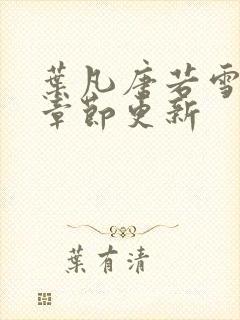 葉凡唐若雪
章節更新
葉有清